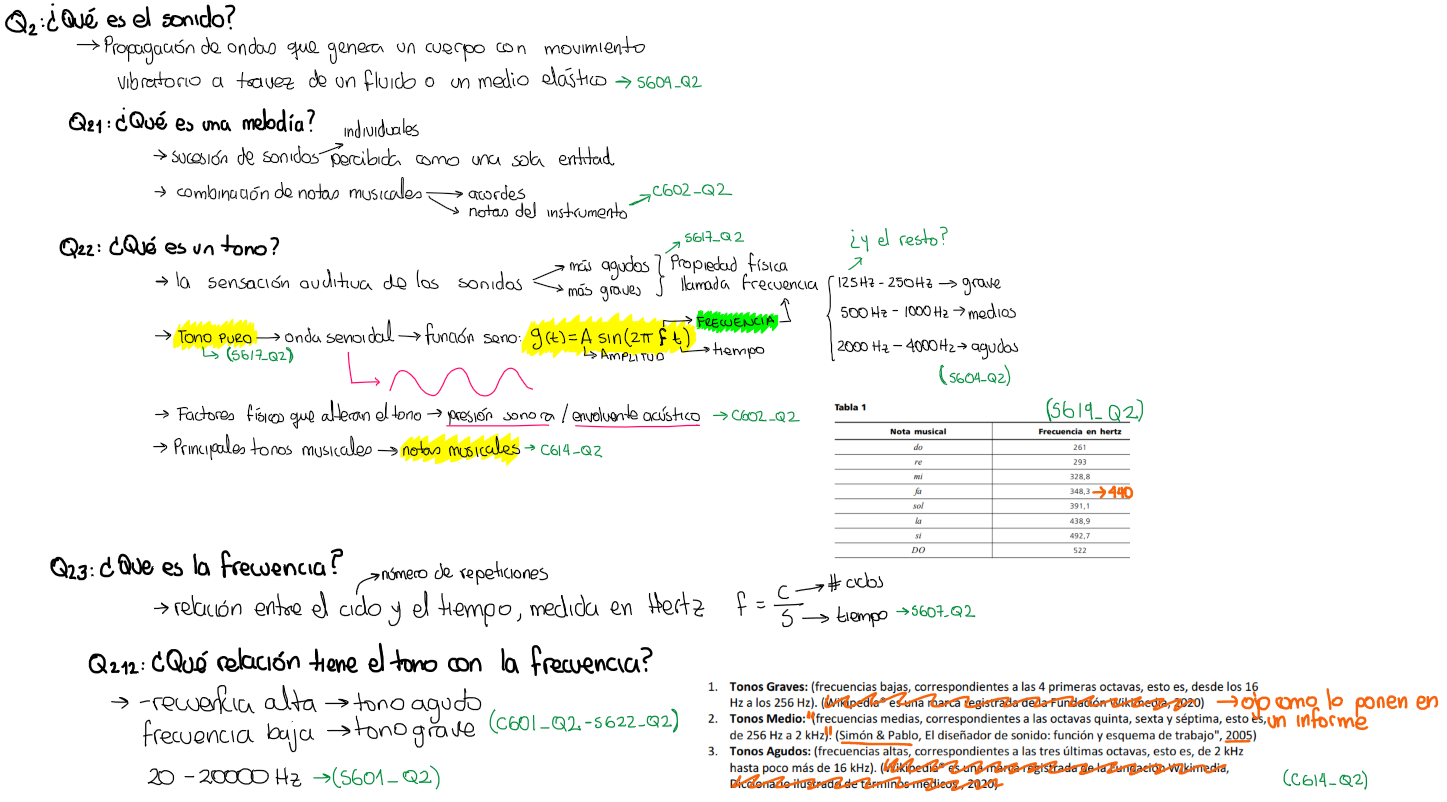 Q2: ¿Qué es el sonido?
→ Propagación de ondas que genera un cuerpo con movimiento
vibratorio a travez de un fluido o un medio elástico → S604_Q2
Q21: ¿Qué es una melodía?
individuales
→ sucesión de sonidos percibida como una sola entidad
→ combinación de notas musicales → acordes
→ notas del instrumento → C602_Q2
Q22: ¿Qué es un tono?
→ la sensación auditiva de los sonidos → más agudos
→ más graves
Propiedad física
llamada frecuencia
S617_Q2
¿y el resto?
125Hz - 250Hz → grave
500 Hz - 1000 Hz → medios
2000 Hz - 4000Hz → agudos
(S604_Q2)
→ TONO PURO → onda senoidal → función seno: g(t) = A sin(2π f t) → FRECUENCIA
(S617_Q2)
→ AMPLITUD → tiempo
→ Factores físicos que alteran el tono → presión sonora / envolvente acústico → C602_Q2
→ Principales tonos musicales → notas musicales → C614_Q2
Tabla 1
(S619_Q2)
Nota musical Frecuencia en hertz
do 261
re 293
mi 328,8
fa 348,3 → 440
sol 391,1
la 438,9
si 492,7
DO 522
Q23: ¿Que es la frecuencia?
→ número de repeticiones
→ relación entre el ciclo y el tiempo, medida en Hertz f = C/S → # ciclos
→ tiempo → S607_Q2
Q212: ¿Qué relación tiene el tono con la frecuencia?
→ -recuencia alta → tono agudo
frecuencia baja → tono grave (C601_Q2-S622_Q2)
20 - 20000 Hz → (S601_Q2)
1. Tonos Graves: (frecuencias bajas, correspondientes a las 4 primeras octavas, esto es, desde los 16
Hz a los 256 Hz). (Wikipedia® es una marca registrada de la Fundación Wikimedia, 2020) → ojo como lo ponen en
un informe
2. Tonos Medio: "(frecuencias medias, correspondientes a las octavas quinta, sexta y séptima, esto es,
de 256 Hz a 2 kHz)." (Simón & Pablo, El diseñador de sonido: función y esquema de trabajo", 2005)
3. Tonos Agudos: (frecuencias altas, correspondientes a las tres últimas octavas, esto es, de 2 kHz
hasta poco más de 16 kHz). (Wikipedia® es una marca registrada de la Fundación Wikimedia,
Diccionario ilustrado de términos médicos., 2020)
(C614_Q2)